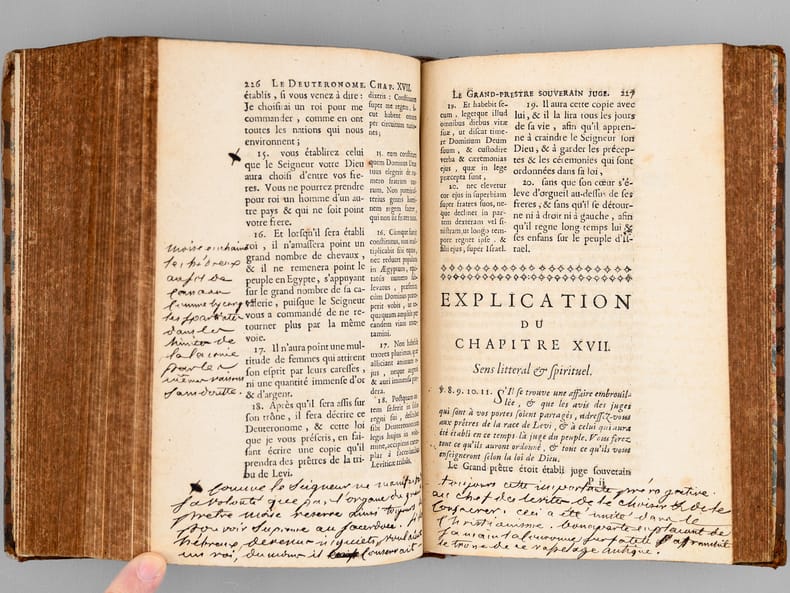 226 LE DEUTERONOME, CHAP. XVII.
établis, si vous venez à dire :
Je choisirai un roi pour me
commander, comme en ont
toutes les nations qui nous
environnent ;
15. vous établirez celui
que le Seigneur votre Dieu
aura choisi d'entre vos fre-
res. Vous ne pourrez prendre
pour roi un homme d'un au-
tre pays & qui ne soit point
votre frere.
16. Et lorsqu'il sera établi
roi, il n'amassera point un
grand nombre de chevaux,
& il ne remenera point le
peuple en Egypte, s'appuyant
sur le grand nombre de sa ca-
valerie, puisque le Seigneur
vous a commandé de ne re-
tourner plus par la même
voie.
17. Il n'aura point une mul-
titude de femmes qui attirent
son esprit par leurs caresses,
ni une quantité immense d'or
& d'argent.
18. Après qu'il sera assis sur
son trône, il fera décrire ce
Deuteronome, & cette loi
que je vous prescris, en fai-
sant écrire une copie qu'il
prendra des prêtres de la tri-
bu de Levi.
dixeris : Constituam
super me regem, si-
cut habent omnes
per circuitum natio-
nes ;
15. eum constitues,
quem Dominus Deus
tuus elegerit de nu-
mero fratrum tuo-
rum. Non poteris
alterius gentis ho-
minem regem facere,
qui non sit frater tuus.
16. Cumque fuerit
constitutus, non mul-
tiplicabit sibi equos,
nec reducet populum
in Ægyptum, equi-
tatus numero sub-
levatus, præsertim
cum Dominus præ-
ceperit vobis, ut ne-
quaquam amplius per
eamdem viam rever-
tamini.
17. Non habebit
uxores plurimas, quæ
alliciant animum e-
jus, neque argenti
& auri immensa pon-
dera.
18. Postquam au-
tem sederit in solio
regni sui, describet
sibi Deuteronomium
legis hujus in volu-
mine, accipiens exem-
plar à sacerdotibus
Leviticæ tribus,
Moise enchaine
les hébreux
au sol de
canaan
comme Lycurgue
les spartiates
dans les
limites de
la laconie
par les
mêmes raisons
sans doute.
Comme le Seigneur ne manifeste
sa volonté que par l'organe du grand
prêtre moise reserve ainsi toujours le
pouvoir Suprême au sacerdoce.
hébreux devenus inquiets
un roi, du moins il couvrait
LE GRAND-PRESTRE SOUVERAIN JUGE. 227
19. Et habebit se-
cum, legetque illud
omnibus diebus vitæ
suæ, ut discat time-
re Dominum Deum
suum, & custodire
verba & cæremonias
ejus, quæ in lege
præcepta sunt,
20. nec elevetur
cor ejus in superbiam
super fratres suos, ne-
que declinet in par-
tem dexteram vel si-
nistram, ut longo tem-
pore regnet ipse, &
filii ejus, super Israel.
19. Il aura cette copie avec
lui, & il la lira tous les jours
de sa vie, afin qu'il appren-
ne à craindre le Seigneur son
Dieu, & à garder les précep-
tes & les cérémonies qui sont
ordonnées dans sa loi,
20. sans que son cœur s'é-
leve d'orgueil au-dessus de ses
freres, & sans qu'il se détour-
ne ni à droit ni à gauche, afin
qu'il regne long temps lui &
ses enfans sur le peuple d'Is-
rael.
EXPLICATION
DU
CHAPITRE XVII.
Sens litteral & spirituel.
℣. 8. 9. 10. 11. S'Il se trouve une affaire embrouil-
lée, & que les avis des juges
qui sont à vos portes soient partagés, adressez-vous
aux prêtres de la race de Levi, & à celui qui aura
été établi en ce temps-là juge du peuple. Vous ferez
tout ce qu'ils auront ordonné, & tout ce qu'ils vous
enseigneront selon la loi de Dieu.
Le Grand prêtre étoit établi juge souverain
P ij
toujours cette importante prérogative
au chef des levites de le choisir & de le
consacrer. ceci a été imité dans le
Christianisme. bonaparte en plaçant de
sa main la couronne sur sa tête affranchit
le trone de ce vasselage antique.